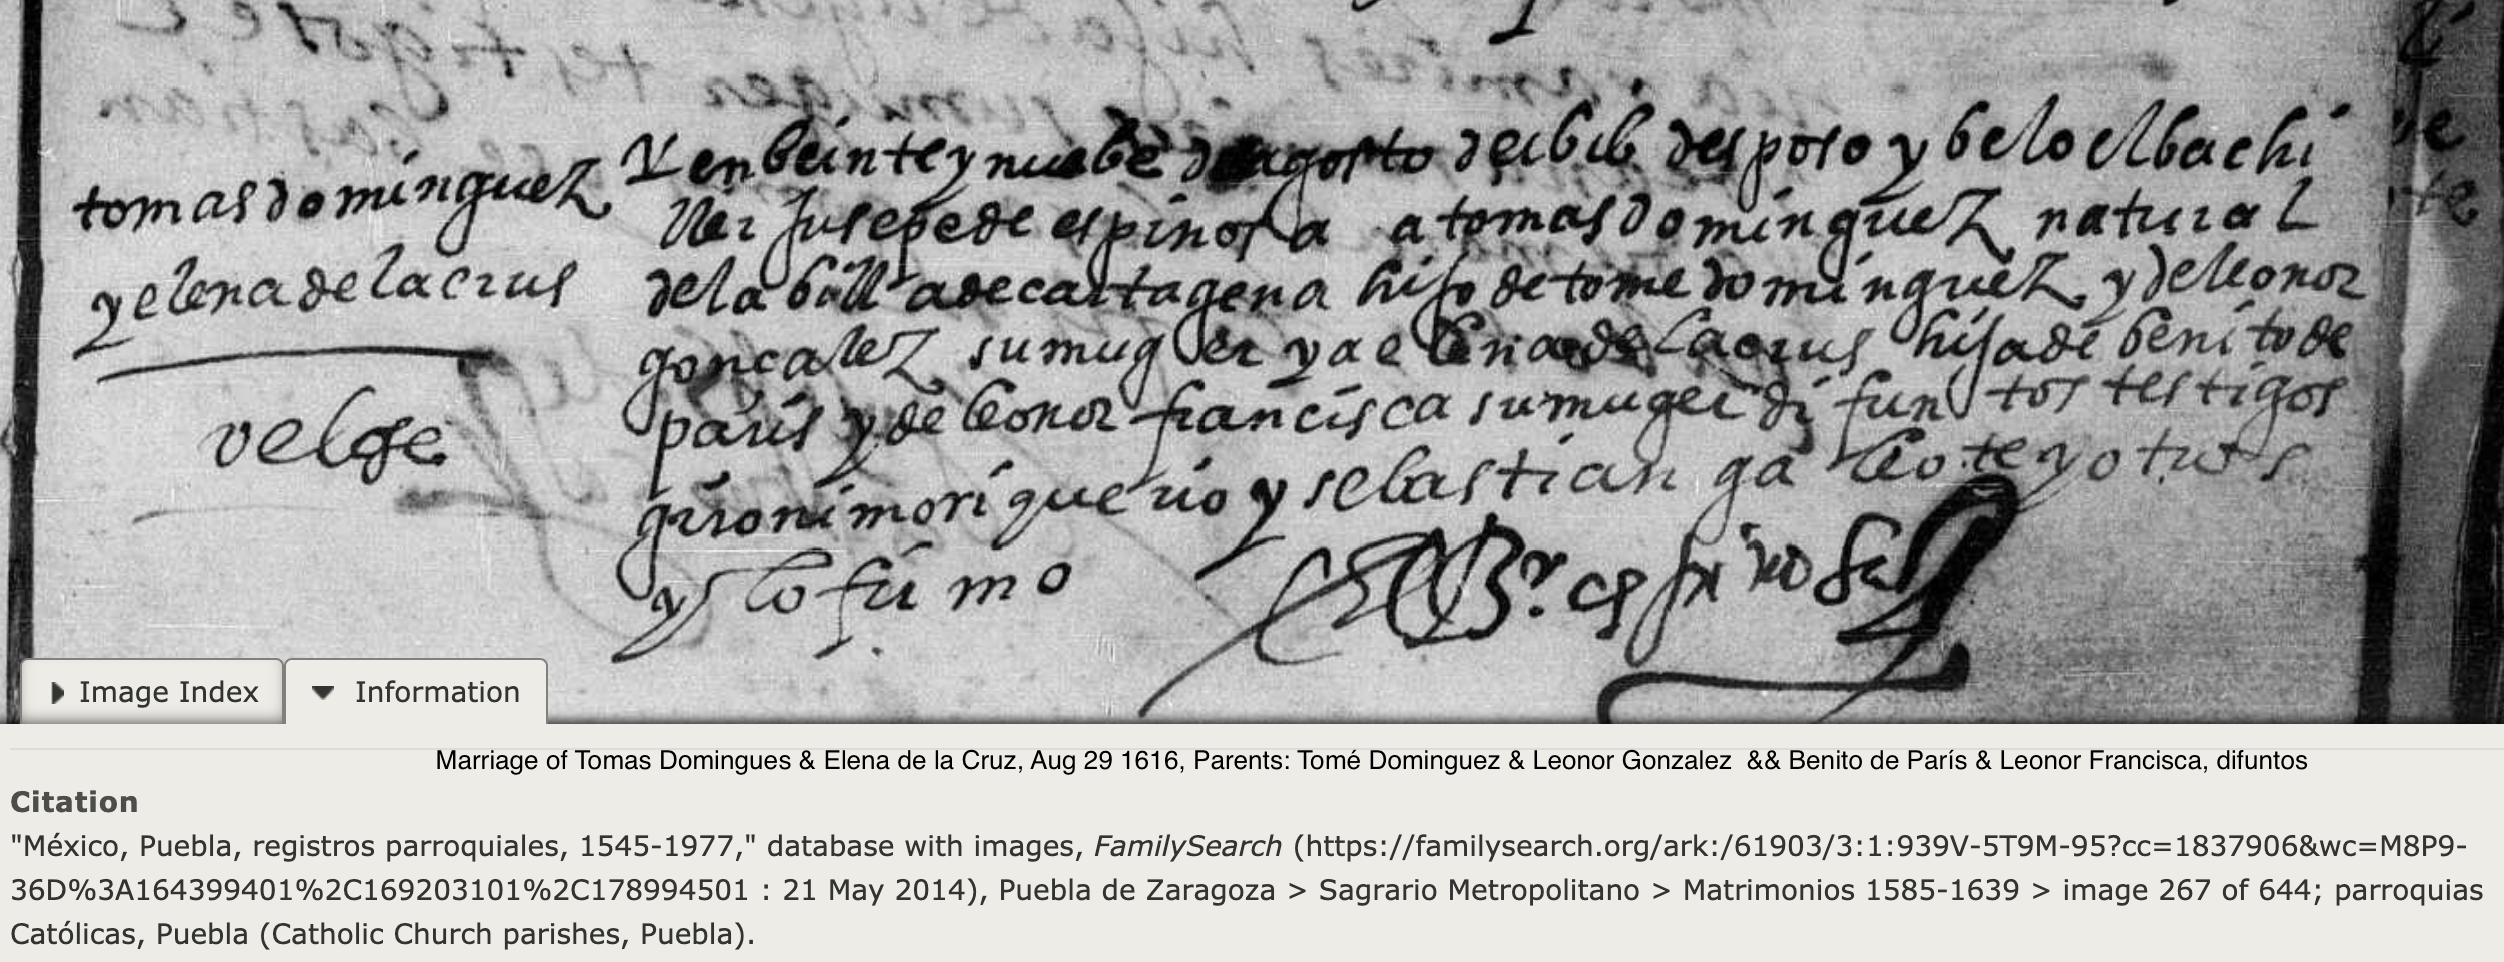 tomas dominguez
y elena de la crus
velose
Y en beinte y nuebe de agosto de ibib desposo y belo el bachi
ller Jusepe de espinosa a tomas dominguez natural
de la billa de cartagena hijo de tome dominguez y de leonor
goncalez su muger y a elena de la crus hija de benito de
paris y de leonor francisca su muger difuntos testigos
gironimo y sebastian y otros
y lo firmo
El Br espinosa
Image Index
Information
Marriage of Tomas Domingues & Elena de la Cruz, Aug 29 1616, Parents: Tomé Dominguez & Leonor Gonzalez && Benito de París & Leonor Francisca, difuntos
Citation
"México, Puebla, registros parroquiales, 1545-1977," database with images, FamilySearch (https://familysearch.org/ark:/61903/3:1:939V-5T9M-95?cc=1837906&wc=M8P9-
36D%3A164399401%2C169203101%2C178994501 : 21 May 2014), Puebla de Zaragoza > Sagrario Metropolitano > Matrimonios 1585-1639 > image 267 of 644; parroquias
Católicas, Puebla (Catholic Church parishes, Puebla).